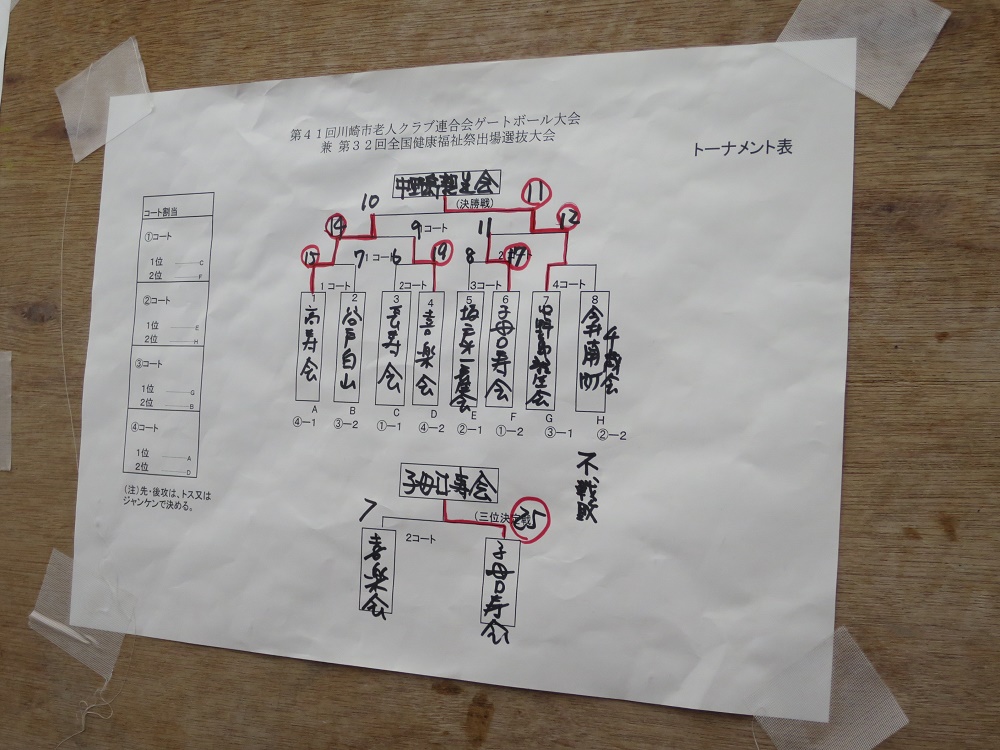 第41回川崎市老人クラブ連合会ゲートボール大会
兼 第32回全国健康福祉祭出場選抜大会
トーナメント表
(決勝戦)
10
11
14
9
コート
11
12
15
7
1コート
6
19
8
1コート
2コート
3コート
4コート
1 高寿会 A ④-1
2 谷戸白山 B ③-2
3 長寿会 C ①-1
4 喜楽会 D ④-2
5 E ②-1
6 子母口寿会 F ①-2
7 G ③-1
8 H ②-2
不戦敗
コート割当
①コート
1位 C
2位 F
②コート
1位 E
2位 H
③コート
1位 G
2位 B
④コート
1位 A
2位 D
(注)先・後攻は、トス又は
ジャンケンで決める。
子母口寿会
7
(三位決定戦)
35
2コート
喜楽会
子母口寿会